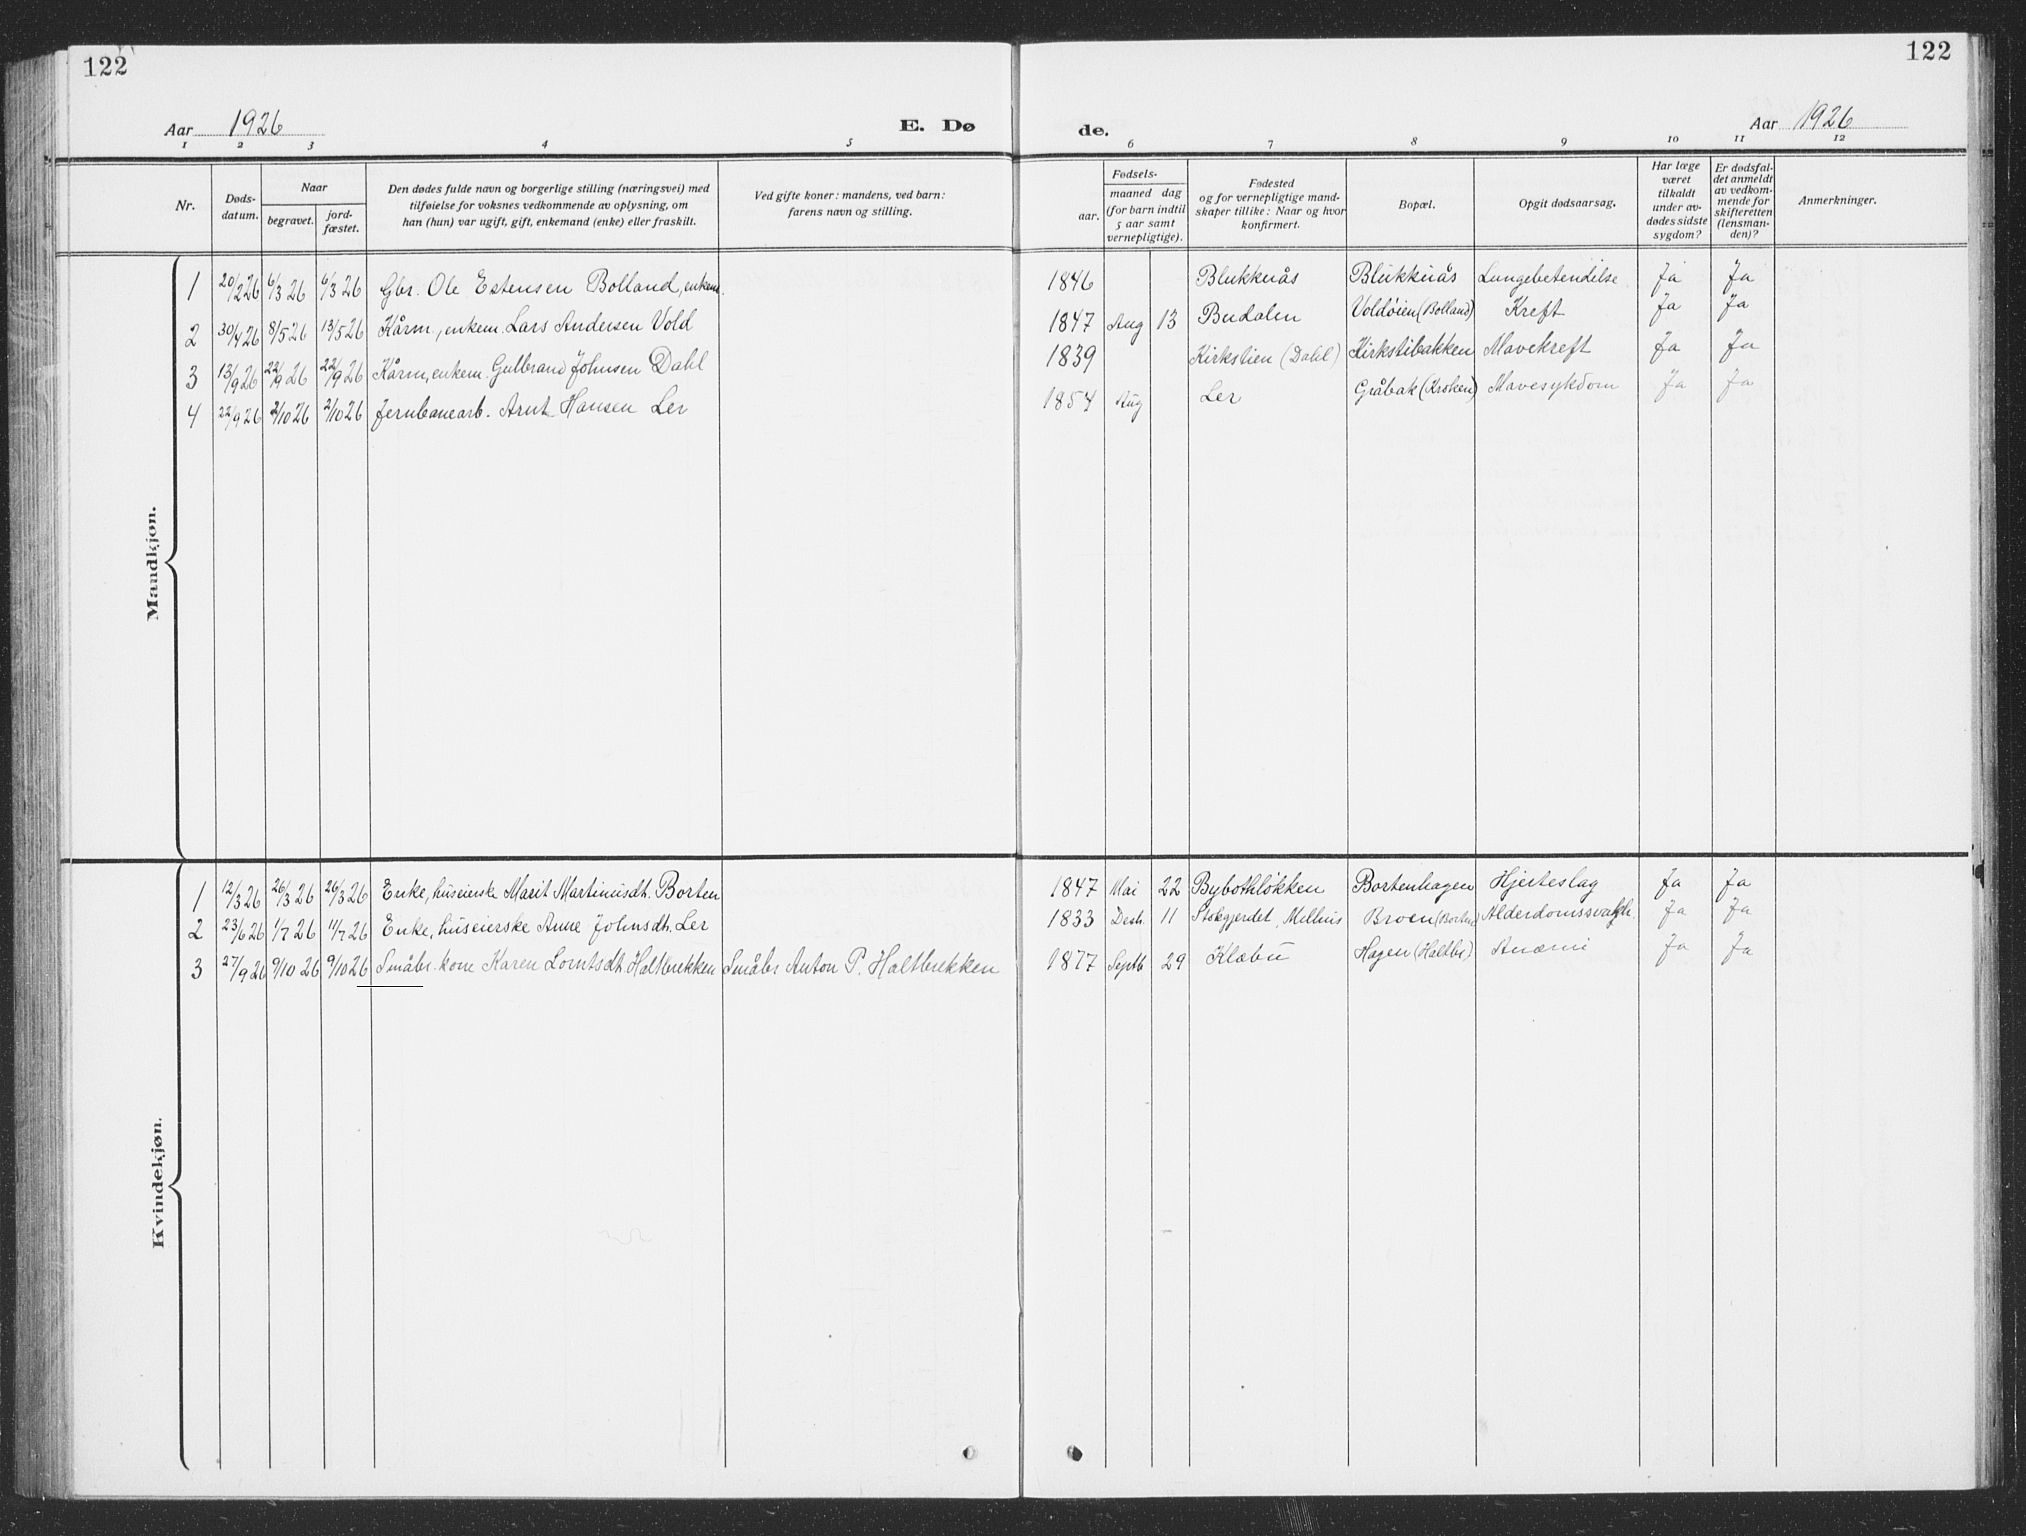 122
122
Aar 1926
E. Dø
de.
Aar 1926
1 2 3 4 5 6 7 8 9 10 11 12
Nr.
Døds-
datum.
Naar
begravet.
jord-
fæstet.
Den dødes fulde navn og borgerlige stilling (næringsvei) med
tilføielse for voksnes vedkommende av oplysning, om
han (hun) var ugift, gift, enkemand (enke) eller fraskilt.
Ved gifte koner: mandens, ved barn:
farens navn og stilling.
Fødsels-
aar.
maaned dag
(for barn indtil
5 aar samt
vernepligtige).
Fødested
og for vernepligtige mand-
skaper tillike: Naar og hvor
konfirmert.
Bopæl.
Opgit dødsaarsag.
Har læge
været
tilkaldt
under av-
dødes sidste
sygdom?
Er dødsfal-
det anmeldt
av vedkom-
mende for
skifteretten
(lensman-
den)?
Anmerkninger.
Mandkjøn.
1 20/2 26 6/3 26 6/3 26 Gbr. Ole Estensen Bolland, enkem. 1846 Blukknås Blukknås Lungebetendelse Ja Ja
2 30/4 26 8/5 26 13/5 26 Kårm., enkem. Lars Andersen Vold 1847 Aug 13 Budalen Voldøien (Bolland) Kreft Ja Ja
3 13/9 26 22/9 26 22/9 26 Kårm, enkem. Gulbrand Johnsen Dahl 1839 Kirkstien (Dahl) Kirkstibakken Mavekreft Ja Ja
4 22/9 26 2/10 26 2/10 26 Jernbanearb. Arnt Hansen Ler 1854 Aug Ler Gråbak (Kroken) Mavesykdom Ja Ja
Kvindekjøn.
1 12/3 26 26/3 26 26/3 26 Enke, huseierske Marit Martinusdt. Borten 1847 Mai 22 Bybothløkken Bortenhagen Hjerteslag Ja Ja
2 23/6 26 1/7 26 11/7 26 Enke, huseierske Anne Johnsdt. Ler 1833 Desb. 11 Stokgjerdet, Melhus Broen (Borten) Alderdomssvakh. Ja Ja
3 27/9 26 9/10 26 9/10 26 Småbr. kone Karen Lorntsdt. Haltbrekken Småbr Anton P. Haltbrekken 1877 Septb 29 Klæbu Hagen (Haltbr) Anæmi Ja Ja